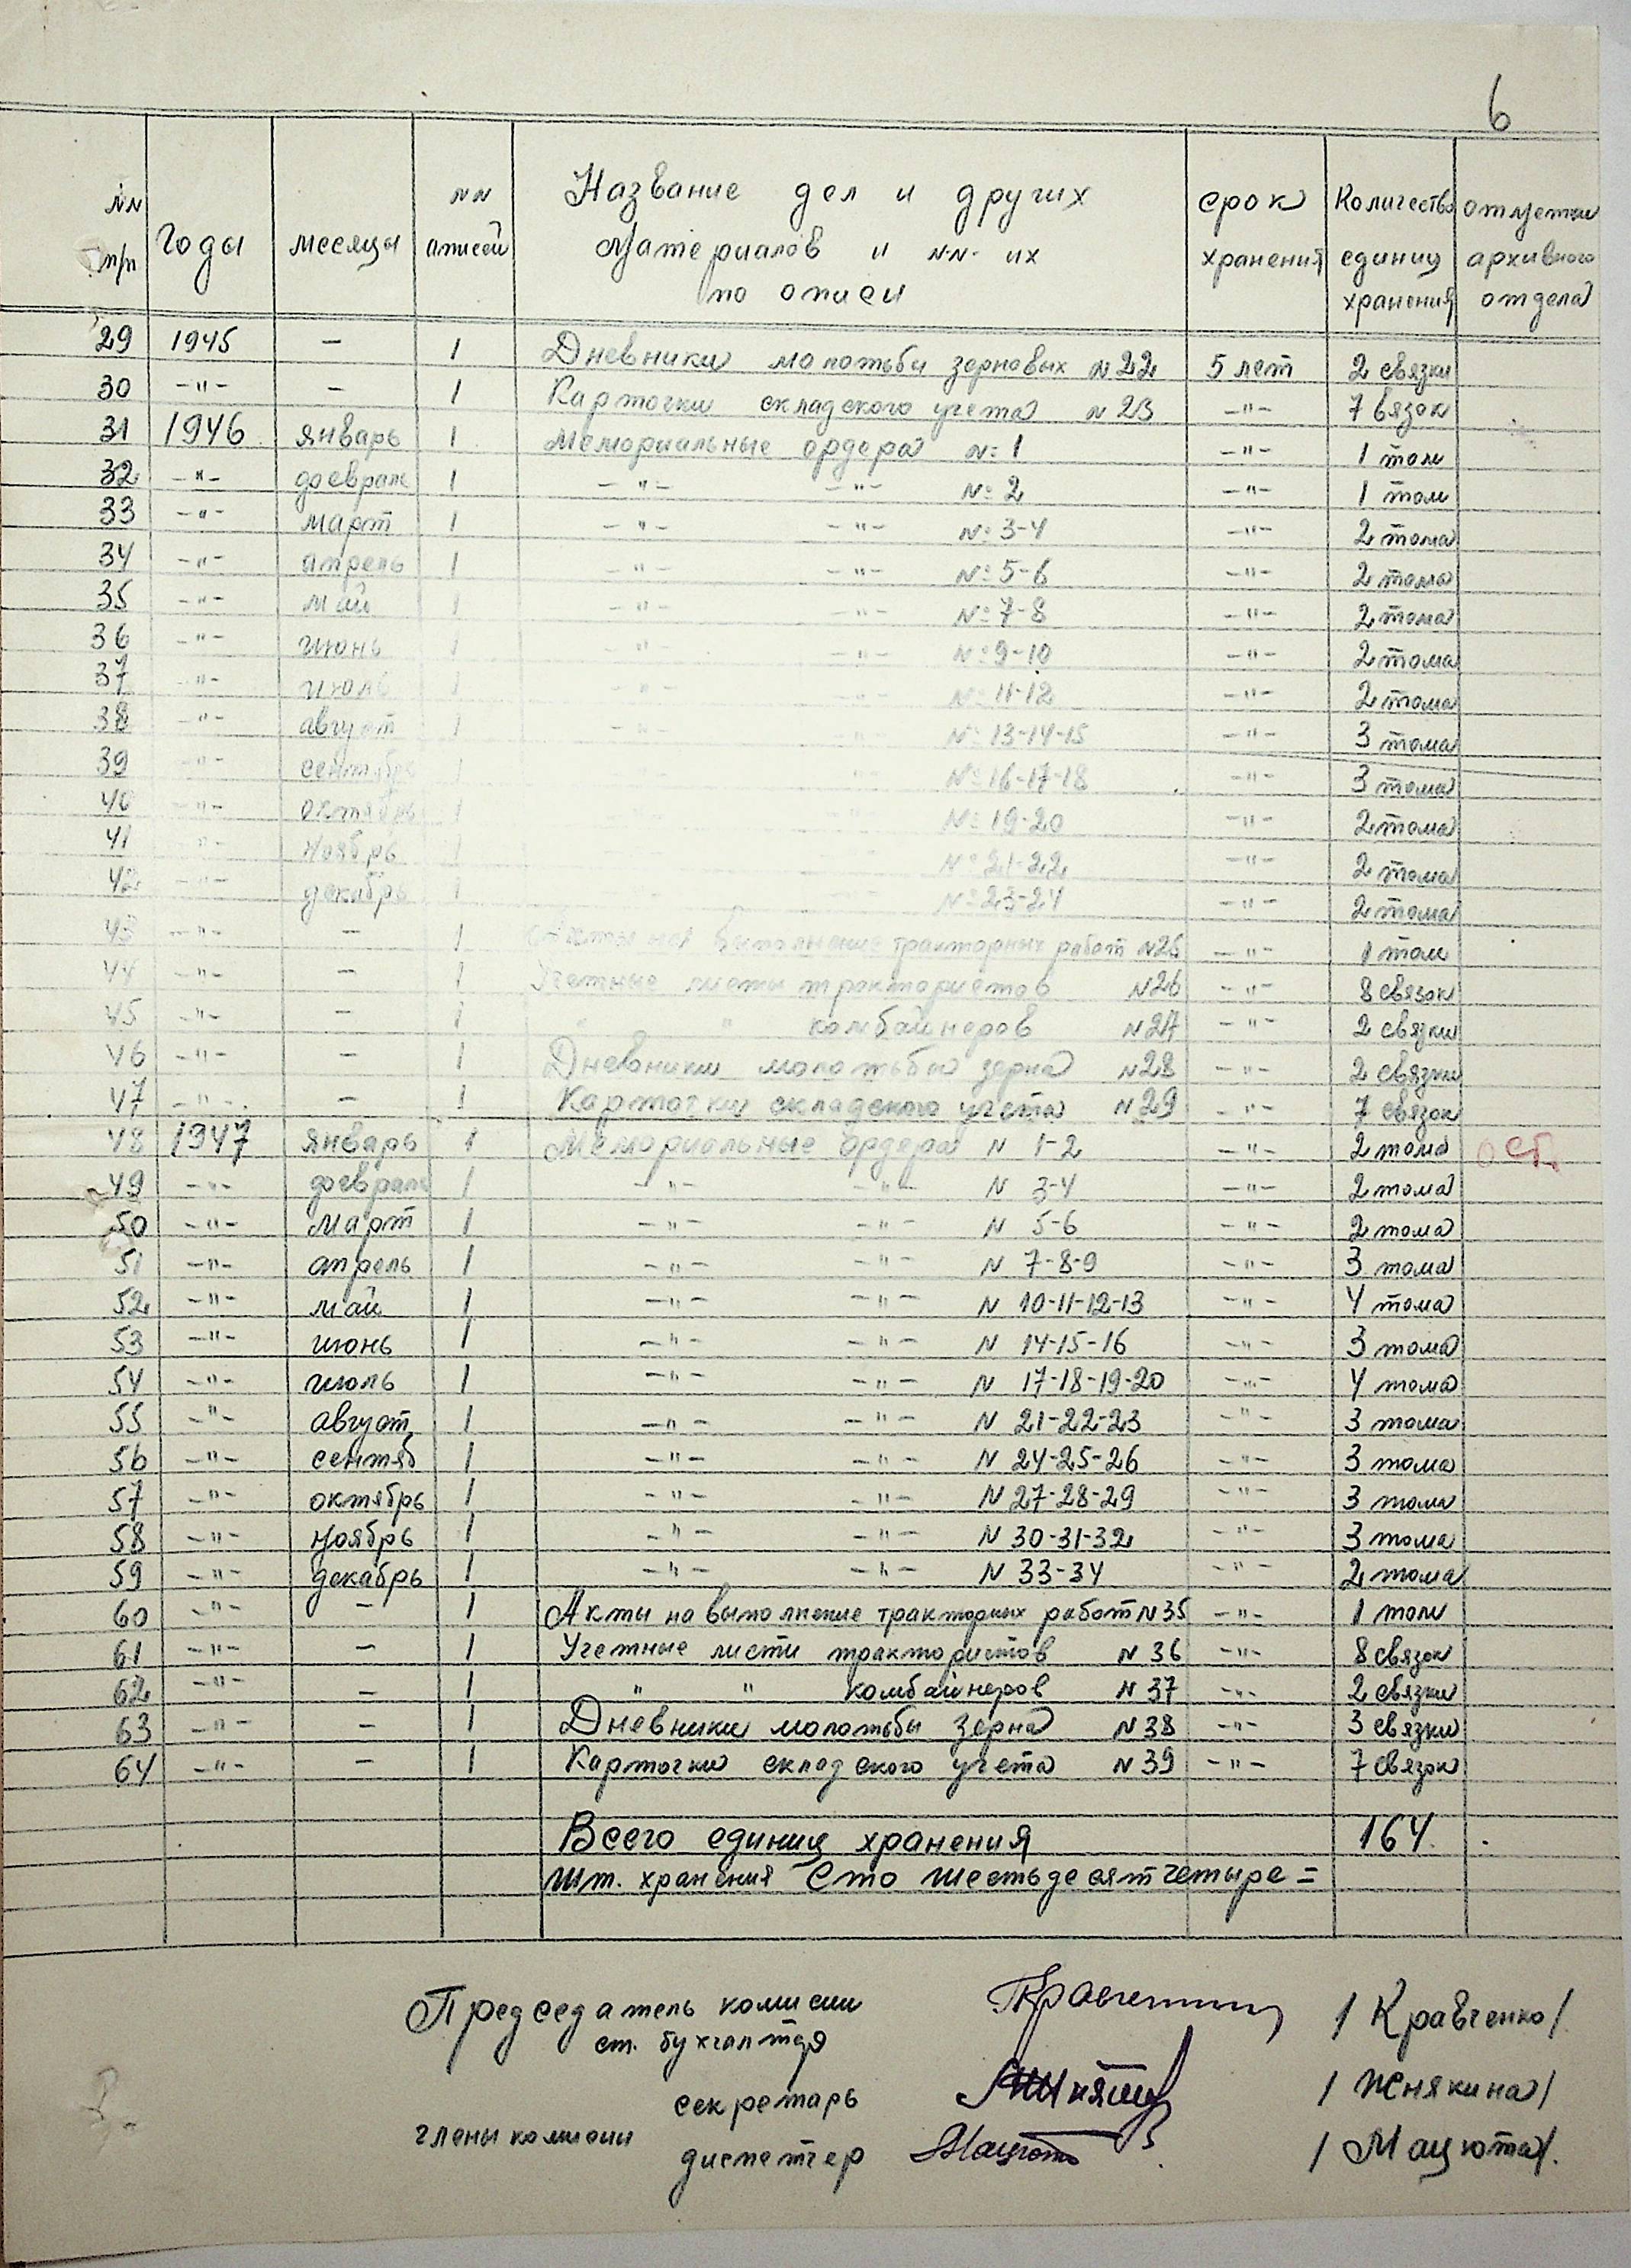 6
NN п/п Годы месяцы NN описей Название дел и других материалов и N-N- их по описи срок хранения Количество единиц хранения отметки архивного отдела
29 1945 — 1 Дневники молотьбы зерновых N 22 5 лет 2 связки
30 -"- — 1 Карточки складского учета N 23 -"- 7 вязок
31 1946 январь 1 Мемориальные ордера №1 -"- 1 том
32 -"- февраль 1 -"- -"- №2 -"- 1 том
33 -"- март 1 -"- -"- №3-4 -"- 2 тома
34 -"- апрель 1 -"- -"- №5-6 -"- 2 тома
35 -"- май 1 -"- -"- №7-8 -"- 2 тома
36 -"- июнь 1 -"- -"- №9-10 -"- 2 тома
37 -"- июль 1 -"- -"- №11-12 -"- 2 тома
38 -"- август 1 -"- -"- №13-14-15 -"- 3 тома
39 -"- сентябрь 1 №16-17-18 -"- 3 тома
40 -"- октябрь 1 -"- №19-20 -"- 2 тома
41 -"- ноябрь 1 №21-22 -"- 2 тома
42 -"- декабрь 1 №23-24 -"- 2 тома
43 -"- — 1 Акты на выполнение тракторных работ N25 -"- 1 том
44 -"- — 1 Учетные листы трактористов N26 -"- 8 связок
45 -"- — 1 " " комбайнеров N27 -"- 2 связки
46 -"- — 1 Дневники молотьбы зерна N28 -"- 2 связки
47 -"- — 1 Карточки складского учета N29 -"- 7 связок
48 1947 январь 1 Мемориальные ордера N 1-2 -"- 2 тома ост.
49 -"- февраль 1 -"- -"- N 3-4 -"- 2 тома
50 -"- март 1 -"- -"- N 5-6 -"- 2 тома
51 -"- апрель 1 -"- -"- N 7-8-9 -"- 3 тома
52 -"- май 1 -"- -"- N 10-11-12-13 -"- 4 тома
53 -"- июнь 1 -"- -"- N 14-15-16 -"- 3 тома
54 -"- июль 1 -"- -"- N 17-18-19-20 -"- 4 тома
55 -"- август 1 -"- -"- N 21-22-23 -"- 3 тома
56 -"- сентяб 1 -"- -"- N 24-25-26 -"- 3 тома
57 -"- октябрь 1 -"- -"- N 27-28-29 -"- 3 тома
58 -"- ноябрь 1 -"- -"- N 30-31-32 -"- 3 тома
59 -"- декабрь 1 -"- -"- N 33-34 -"- 2 тома
60 -"- — 1 Акты на выполнение тракторных работ N35 -"- 1 том
61 -"- — 1 Учетные листи трактористов N 36 -"- 8 связок
62 -"- — 1 " " комбайнеров N 37 -"- 2 связки
63 -"- — 1 Дневники молотьбы зерна N38 -"- 3 связки
64 -"- — 1 Карточки складского учета N39 -"- 7 связок
Всего единиц хранения 164.
шт. хранения Сто шестьдесят четыре =
Председатель комисии
ст. бухгалтер /Кравченко/
секретарь /Жнякина/
члены комисии
диспетчер /Мацюта/.